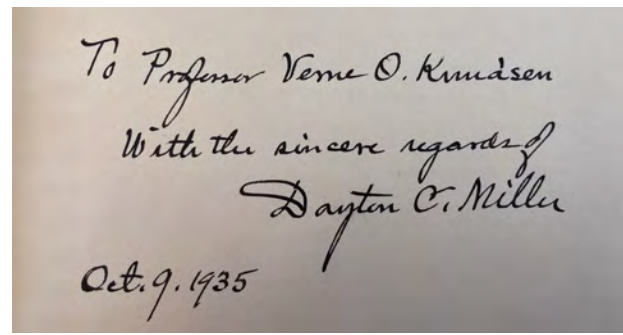 To Professor Verne O. Knudsen
With the sincere regards of
Dayton C. Miller
Oct. 9. 1935